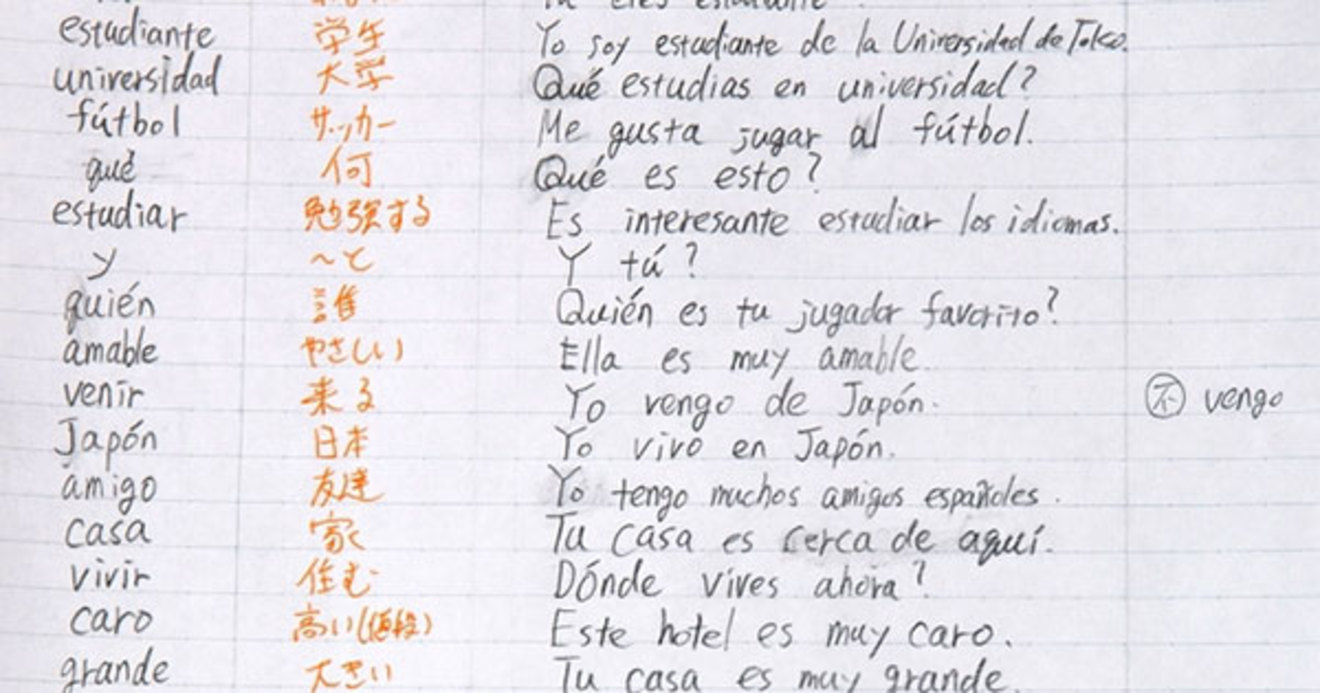 estudiante 学生 Yo soy estudiante de la Universidad de Tokio.
universidad 大学 Qué estudias en universidad?
fútbol サッカー Me gusta jugar al fútbol.
qué 何 Qué es esto?
estudiar 勉強する Es interesante estudiar los idiomas.
y ～と Y tú?
quién 誰 Quién es tu jugador favorito?
amable やさしい Ella es muy amable.
venir 来る Yo vengo de Japón. 不 vengo
Japón 日本 Yo vivo en Japón.
amigo 友達 Yo tengo muchos amigos españoles.
casa 家 Tu casa es cerca de aquí.
vivir 住む Dónde vives ahora?
caro 高い(値段) Este hotel es muy caro.
grande 大きい Tu casa es muy grande.